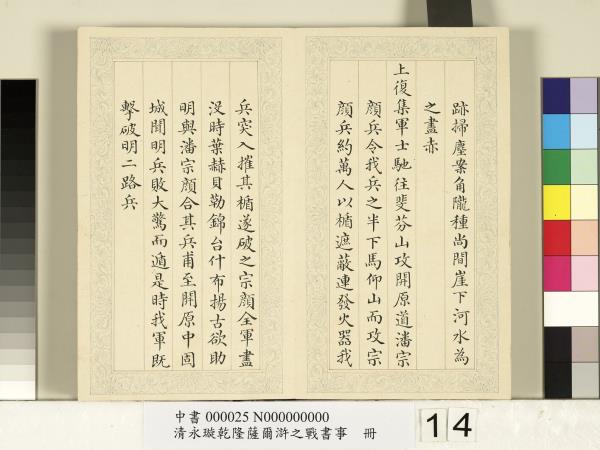 跡掃塵案角隴種尚間崖下河水為
之盡赤
上復集軍士馳往斐芬山攻開原道潘宗
顏兵令我兵之半下馬仰山而攻宗
顏兵約萬人以楯遮蔽連發火器我
兵突入摧其楯遂破之宗顏全軍盡
沒時葉赫貝勒錦台什布揚古欲助
明與潘宗顏合其兵甫至開原中固
城聞明兵敗大驚而遁是時我軍既
擊破明二路兵
中書 000025 N000000000
清永璇乾隆薩爾滸之戰書事 冊
14